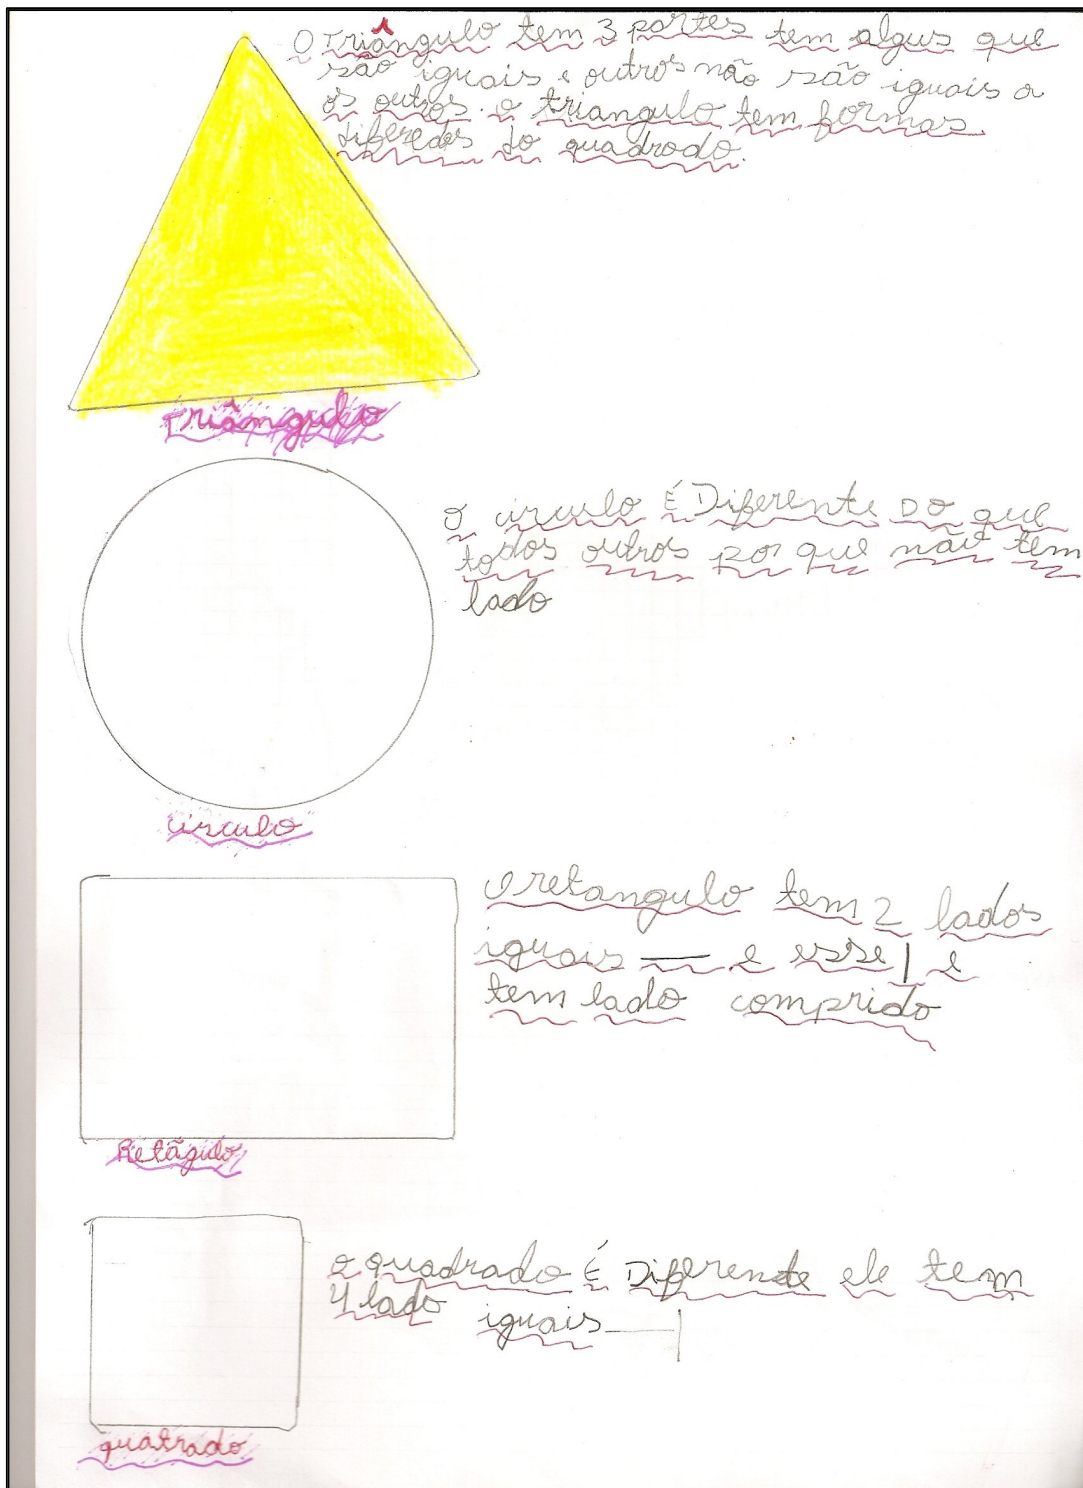 O Triângulo tem 3 partes tem algus que
são iguais e outros não são iguais a
os outros. o triangulo tem formas
diferedes do quadrado.
triângulo
O circulo É Diferente DO que
todos outros por que não tem
lado
circulo
O retangulo tem 2 lados
iguais — e esse | e
tem lado comprido
Retãgulo
o quadrado É Diferende ele tem
4 lado iguais — |
quatrado